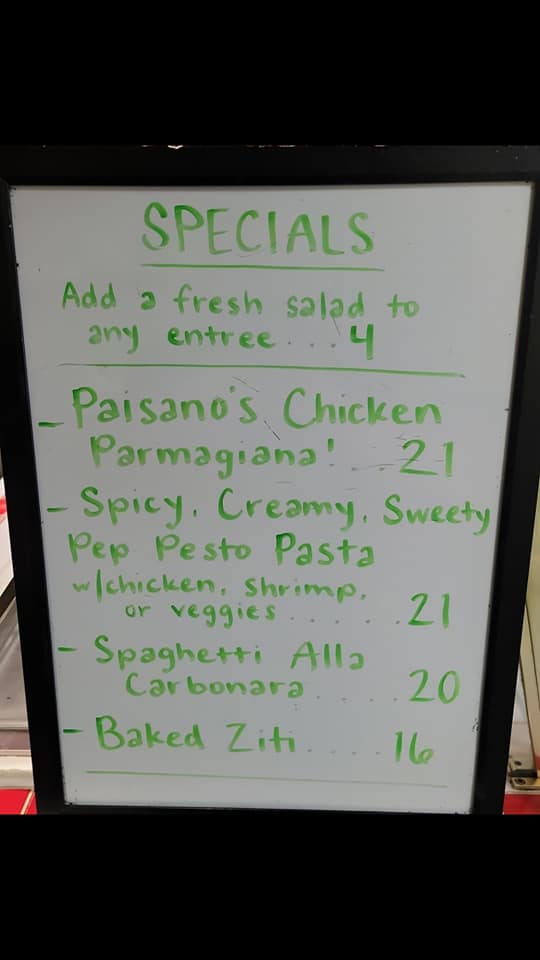 SPECIALS
Add a fresh salad to
any entree...4
- Paisano's Chicken
Parmagiana! ...21
- Spicy, Creamy, Sweety
Pep Pesto Pasta
w/chicken, shrimp,
or veggies ......21
- Spaghetti Alla
Carbonara.....20
- Baked Ziti....16